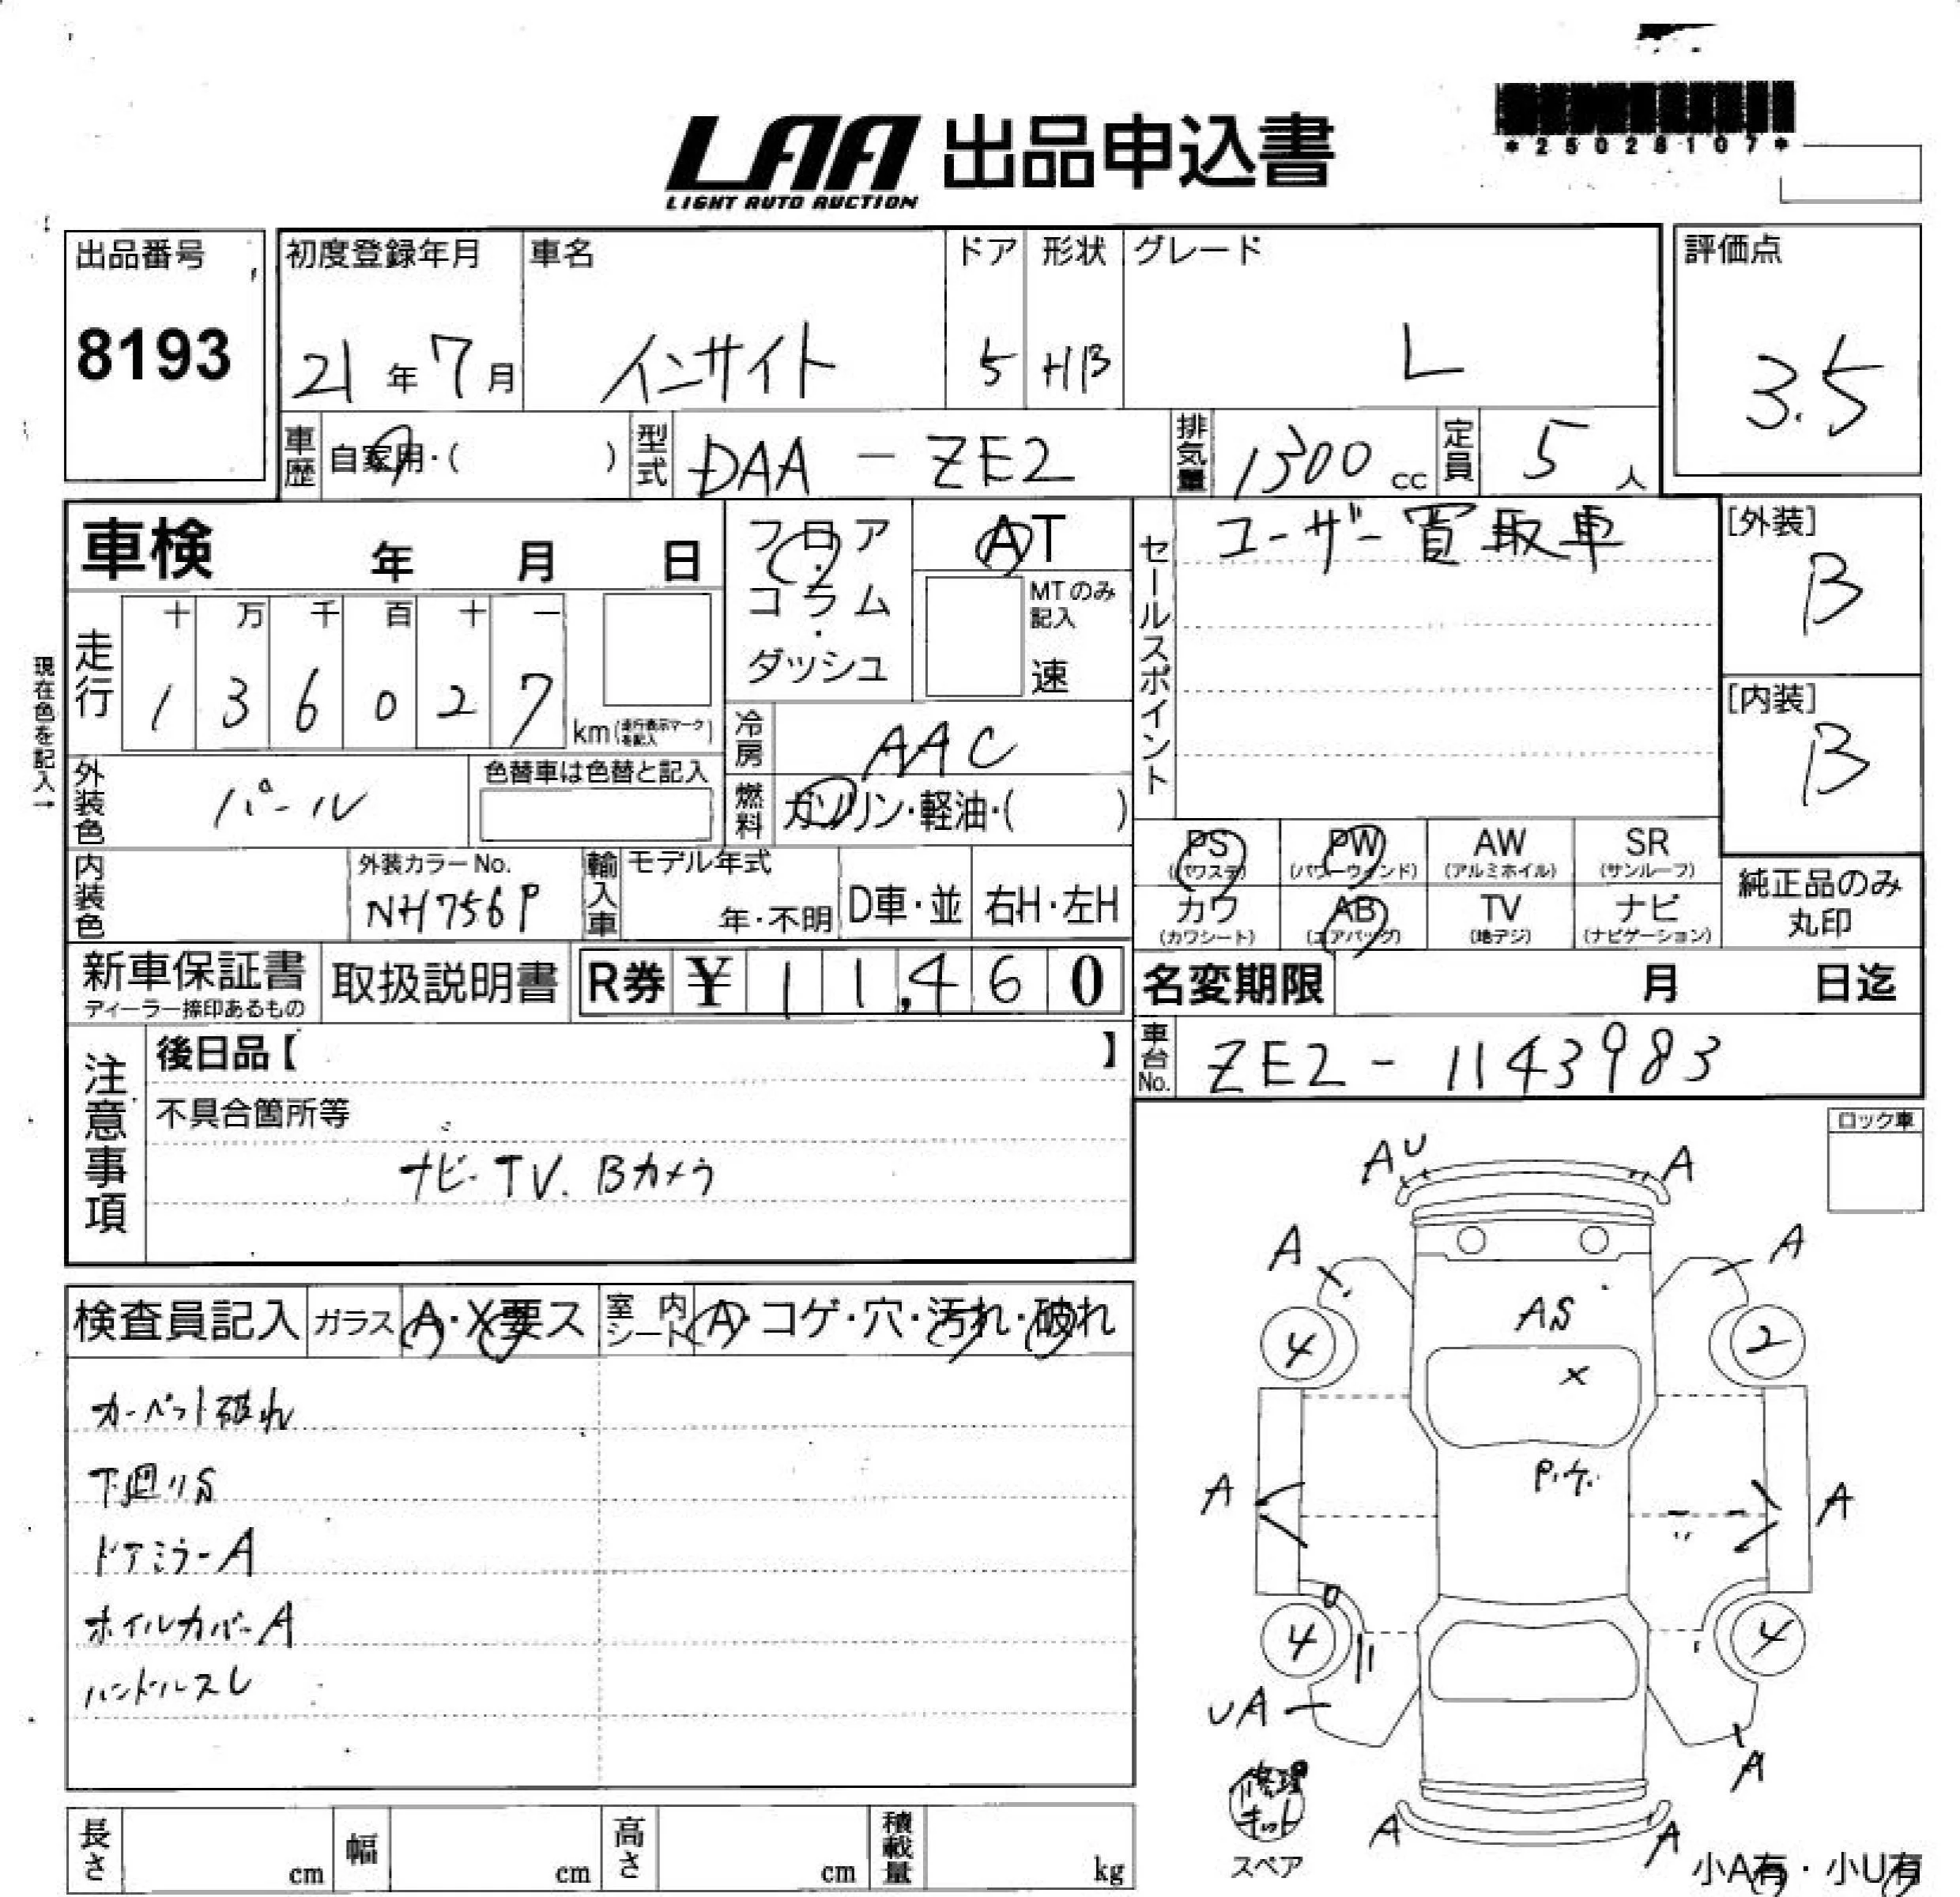 *25028107*
LAA 出品申込書
LIGHT AUTO AUCTION
出品番号
8193
初度登録年月
21年7月
車名
インサイト
ドア
5
形状
HB
グレード
L
評価点
3.5
車歴 自家用・( )
型式 DAA - ZE2
排気量 1300 cc
定員 5 人
車検 年 月 日
フロア・コラム・ダッシュ
AT
MTのみ記入
速
セールスポイント
ユーザー買取車
[外装]
B
[内装]
B
現在色を記入→
走行 十 万 千 百 十 一
1 3 6 0 2 7 km(走行表示マークを記入)
冷房 AAC
燃料 ガソリン・軽油・( )
外装色 パール
色替車は色替と記入
内装色
外装カラーNo.
NH756P
輸入車 モデル年式
年・不明
D車・並
右H・左H
PS (パワステ)
PW (パワーウインド)
AW (アルミホイル)
SR (サンルーフ)
カワ (カワシート)
AB (エアバッグ)
TV (地デジ)
ナビ (ナビゲーション)
純正品のみ丸印
新車保証書
ディーラー捺印あるもの
取扱説明書
R券 ¥ 11,460
名変期限 月 日迄
車台No. ZE2 - 1143983
注意事項
後日品【 】
不具合箇所等
ナビ・TV. Bカメラ
ロック車
検査員記入
ガラス A・X要ス
室内シート A・コゲ・穴・汚れ・破れ
カーペット破れ
下廻りS
ドアミラーA
ホイルカバーA
ハンドルスレ
AU
A
A
A
AS
4
2
X
P.ケ.
A
A
4
4
UA
A
修理キット
スペア
A
A
小A有・小U有
長さ cm
幅 cm
高さ cm
積載量 kg